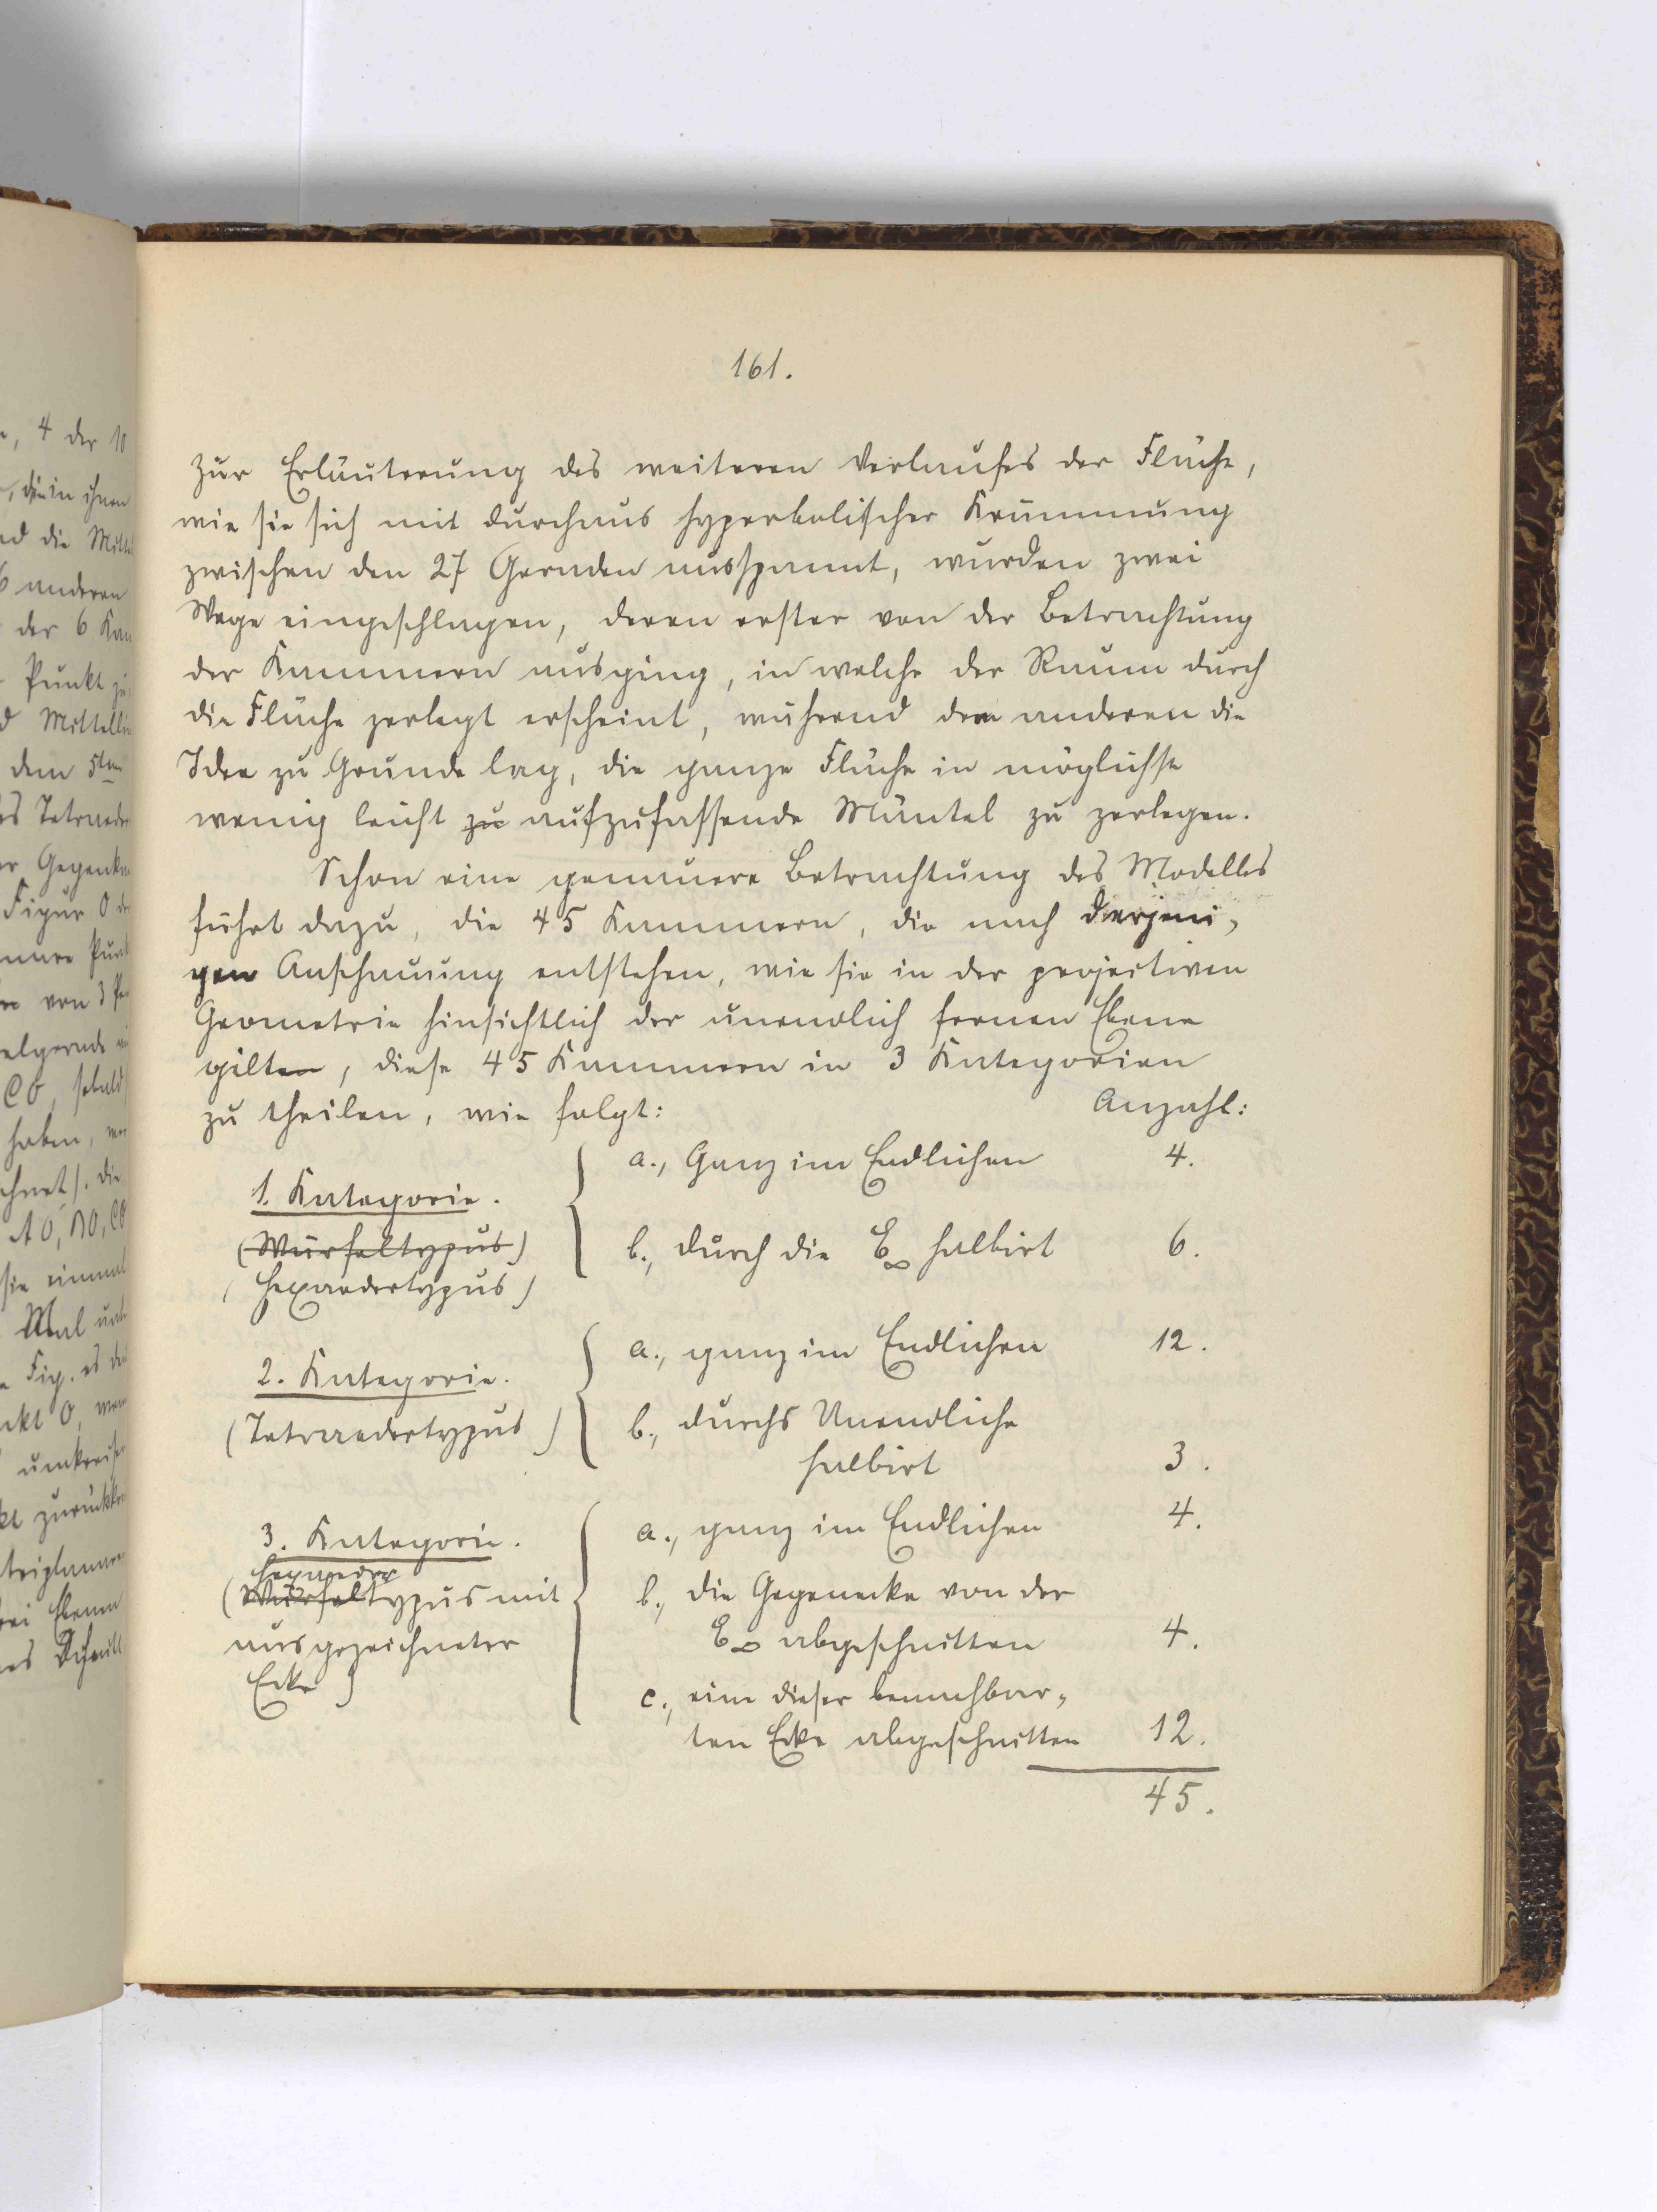 161.
zur Erläuterung des weiteren Verlaufes der Fläche,
wie sie sich mit durchaus hyperbolischer Krümmung
zwischen den 27 Geraden ausspannt, wurden zwei
Wege eingeschlagen, deren erster von der Betrachtung
der Kammern ausging, in welche der Raum durch
die Fläche zerlegt erscheint, während dem anderen die
Idee zu Grunde lag, die ganze Fläche in möglichst
wenig leicht zu aufzufassende Mäntel zu zerlegen.
Schon eine genauere Betrachtung des Modelles
führt dazu, die 45 Kammern, die nach derjeni-
gen Anschauung entstehen, wie sie in der projectiven
Geometrie hinsichtlich der unendlich fernen Ebene
gilten, diese 45 Kammern in 3 Kategorien
zu theilen, wie folgt: Anzahl:
1. Kategorie.
(Würfeltypus)
(Hexaedertypus)
a., Ganz im Endlichen 4.
b., durch die E∞ halbirt 6.
2. Kategorie.
(Tetraedertypus)
a., ganz im Endlichen 12.
b., durchs Unendliche
halbirt 3.
3. Kategorie.
Hexaeder
(Würfeltypus mit
ausgezeichneter
Ecke)
a., ganz im Endlichen 4.
b., die Gegenecke von der
E∞ abgeschnitten 4.
c., eine dieser benachbar-
ten Ecke abgeschnitten 12.
45.
, 4 der 10
, die in ihnen
die Mitte
6 anderen
der 6
Punkt
Mittell
dem 5ten
Tetraeder
Gegenk
Figur O
von 3
CO, sobald
haben,
die
AO, BO, CO
sie einmal
Mal
Fig. es
O,
umkreis
zurückk
Ebenen